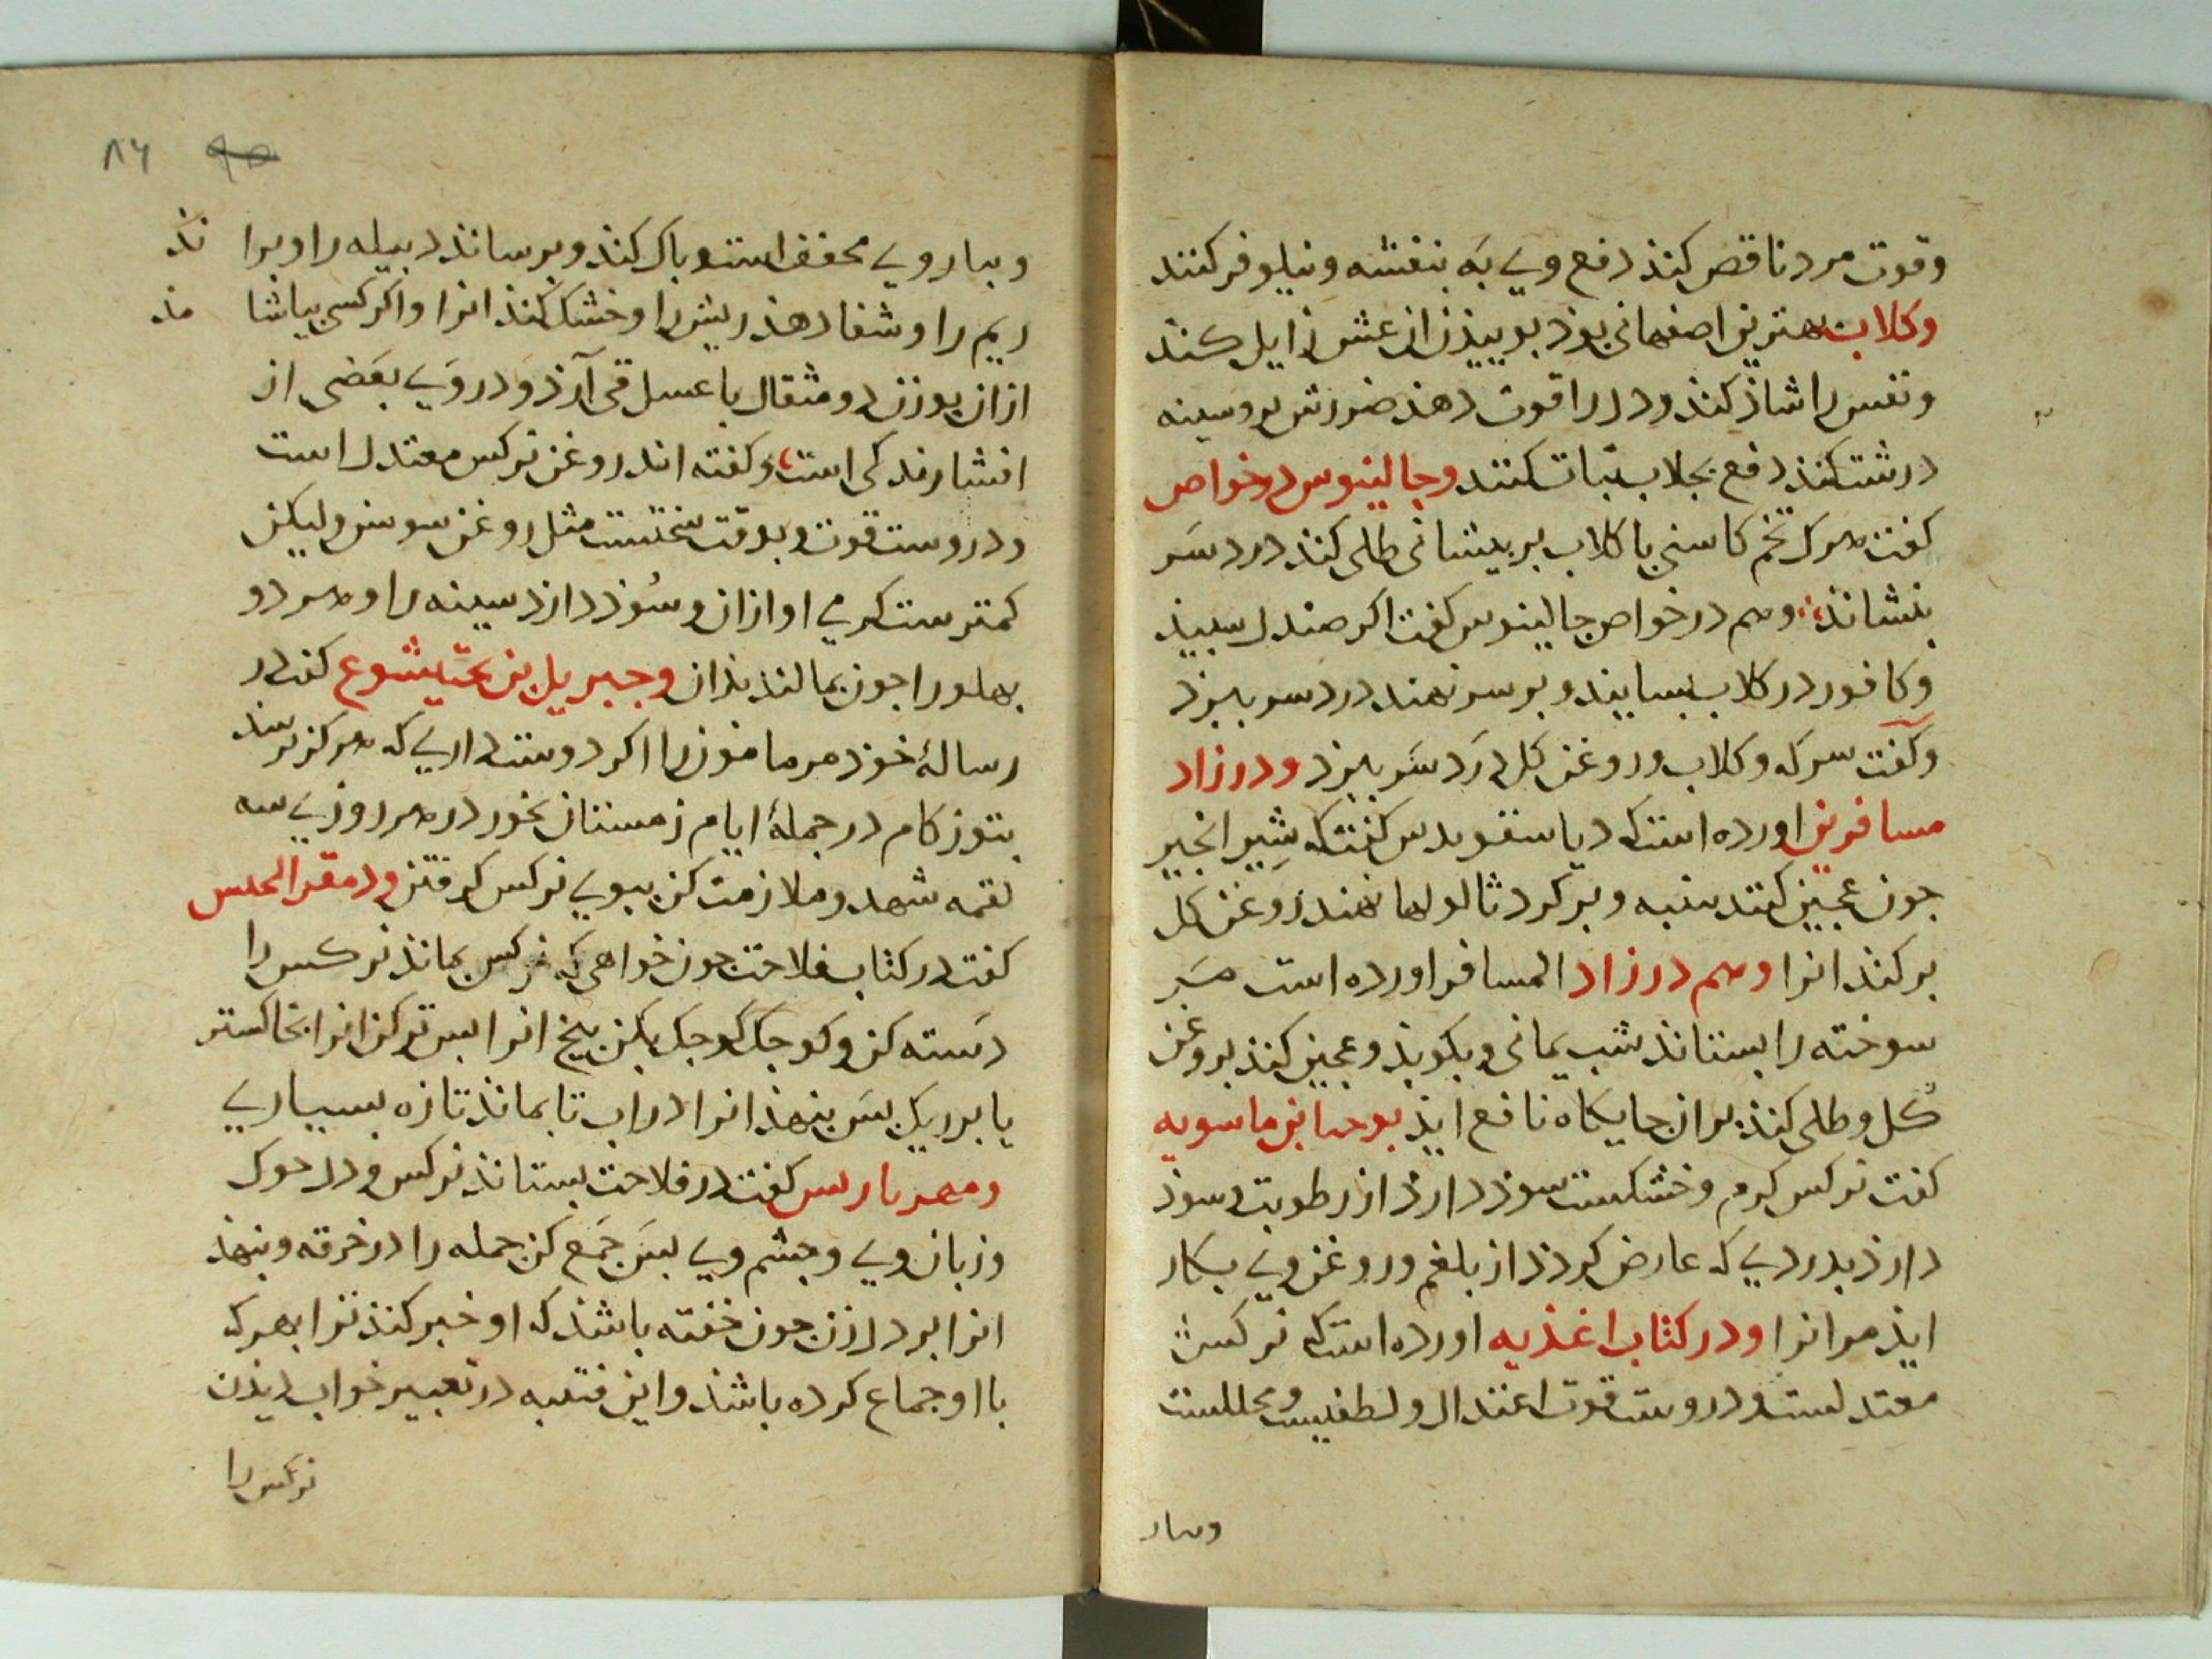 وقوت مرد ناقص کند دفع وی به بنفشه ونیلوفر کنند
وکلاب بهترین اصفهانی بوذ بوییذن ان عشی زایل کند
ونفس را شاذ کند ودل را قوت دهذ ضررش بر وسینه
درشت کنذ دفع بجلاب نبات کنند وجالینوس در خواص
کفت هرک تخم کاسنی با کلاب بر پیشانی طلی کند درد سَر
بنشاند وهم در خواص جالینوس کفت اکر صندل سبیذ
وکافور در کلاب بسایند وبر سر نهند درد سر ببرد
وکفت سرکه وکلاب وروغن کل درَد سَر ببرد ودر زاد
مسافرین اورده است که دیاسقوریدس کفت که شِیر انجیر
جون عجین کنند بنبه وبر کرد ثالولها نهند روغن کل
بر کند انرا وهم در زاد المسافر اورده است
سوخته را بستاند شب یمانی وبکوبذ وعجین کنذ بروغن
کُل وطلی کنذ بران جایکاه نافع ایذ یوحنا بن ماسویه
کفت نرکس کرم وخشکست سوذ دارذ از رطوبت وسوذ
دارذ بدردی که عارض کردذ از بلغم وروغن وی بکار
ایذ مر انرا ودر کتاب اغذیه اورده است که نرکس
معتدلست ودروست قوت اعتدال ولطیفیست ومحللست
وبیار
۸۶
وبیار وی مجفف است وباک کند وبرساند دبیله را وبراند
ریم را وشفا دهذ ریش را وخشک کنذ انرا واکر کسی بیاشامذ
از ان بوزن دو مثقال با عسل قی آرذ ودر وَی بَعَضی از
افشارندکی است وکفته اند روغن نرکس معتدل است
ودروست قوت وبوقت مثل روغن سوسن ولیکن
کمترست کرمی او ازان وسُوذ دارذ سینه را وهر دو
بهلو را جون بمالند بذان وجبریل بن بختیشوع کفت در
رسالهٔ خوذ مر مامون را اکر دوست داری که هرکز نرسذ
بتو زکام در جملهٔ ایام زمستان بخور در هر روزی سه
لقمه شهد وملازمت کن ببوی نرکس کرفتن و
کفت در کتاب فلاحت جون خواهی که نرکس بماند نرکس را
دَسته کن وکوجک کوجک بکن بیخ انرا بس تر کن انرا بخاکستر
یا بوریک بس بنهذ انرا در اب تا بماند تازه بسیاری
و کفت در فلاحت بستاند نرکس ودل
وزبان وی وجشم وی بسَ جَمَع کن جمله را در خرقه وبنهذ
انرا بر دل زن جون خفته باشذ که او خبر کنذ ترا بهرکه
با او جماع کرده باشذ واین قتیبه در تعبیر خواب دیذن
نرکس را